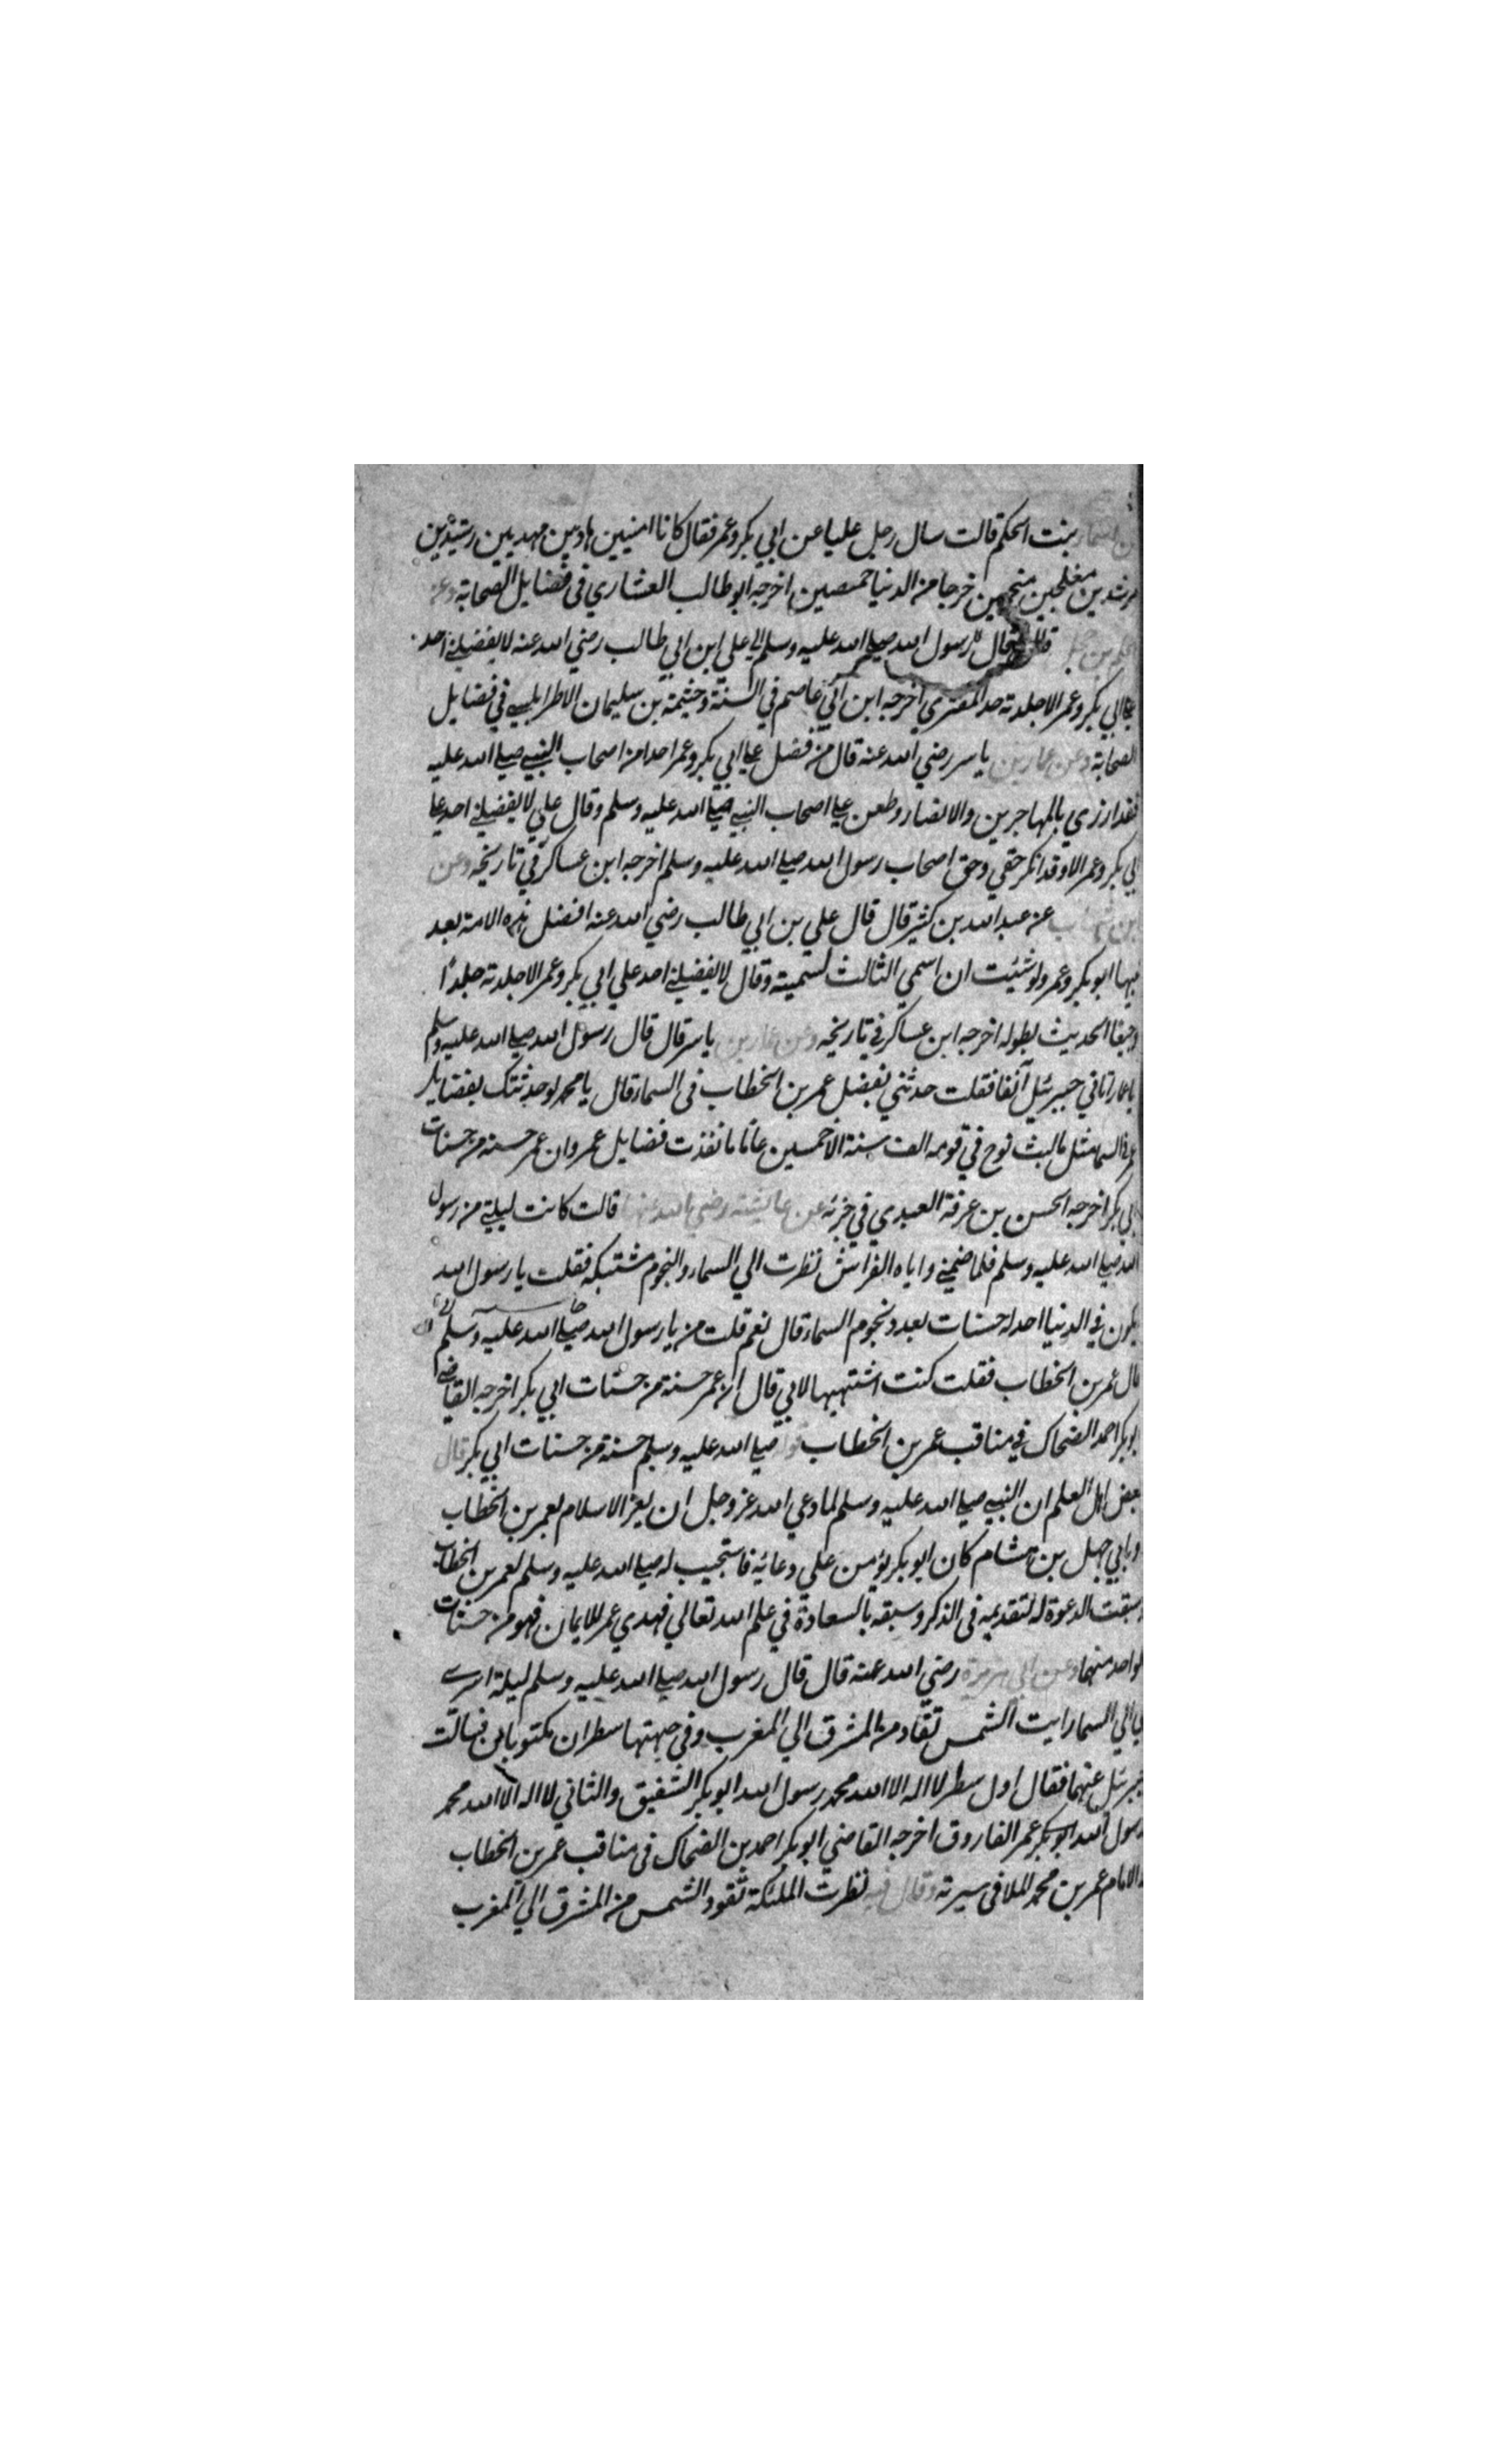 اسماء بنت الحكم قالت سال رجل عليا عن ابي بكر وعمر فقال كانا امنيين هاديين مهديين رشيدين
مرشدين مفلحين منجحين خرجا من الدنيا خمصين اخرجه ابو طالب العشاري في فضايل الصحابة وعن
قال رسول الله صلى الله عليه وسلم علي ابن ابي طالب رضي الله عنه لا يفضلني احد
على ابي بكر وعمر الا جلدته حد المفتري اخرجه ابن ابي عاصم في السنة وخيثمة بن سليمان الاطرابلسي في فضايل
الصحابة وعن عمار بن ياسر رضي الله عنه قال من فضل على ابي بكر وعمر احدا من اصحاب النبي صلى الله عليه
فقد ازري بالمهاجرين والانصار وطعن على اصحاب النبي صلى الله عليه وسلم وقال علي لا يفضلني احد على
ابي بكر وعمر الا وقد انكر حقي وحق اصحاب رسول الله صلى الله عليه وسلم اخرجه ابن عساكر في تاريخه وعن
ابن شهاب عن عبد الله بن كثير قال قال علي بن ابي طالب رضي الله عنه افضل هذه الامة بعد
نبيها ابو بكر وعمر ولو شئيت ان اسمي الثالث لسميته وقال لا يفضلني احد علي ابي بكر وعمر الا جلدته جلدًا
وجيعا الحديث بطوله اخرجه ابن عساكر في تاريخه وعن عمار بن ياسر قال قال رسول الله صلى الله عليه وسلم
يا عمار اتاني جبرئيل آنفا فقلت حدثني بفضل عمر بن الخطاب في السماء قال يا محمد لو حدثتك بفضايل
عمر في السما مثل ما لبث نوح في قومه الف سنة الا خمسين عامًا ما نفدت فضايل عمر وان عمر حسنة من حسنات
ابي بكر اخرجه الحسن بن عرفة العبدي في جزئه عن عايشة رضي الله عنها قالت كانت ليلتي من رسول
الله صلى الله عليه وسلم فلما ضمني واياه الفراش نظرت الي السماء والنجوم مشتبكة فقلت يا رسول الله
يكون في الدنيا احد له حسنات بعدد نجوم السماء قال نعم قلت من يا رسول الله صلى الله عليه وسلم
قال عمر بن الخطاب فقلت كنت اشتهيها لابي قال ان عمر حسنة من حسنات ابي بكر اخرجه القاضي
ابو بكر احمد الضحاك في مناقب عمر بن الخطاب قوله صلى الله عليه وسلم حسنة من حسنات ابي بكر قال
بعض اهل العلم ان النبي صلى الله عليه وسلم لما دعي الله عز وجل ان يعز الاسلام بعمر بن الخطاب
وبابي جهل بن هشام كان ابو بكر يؤمن علي دعائه فاستجيب له صلى الله عليه وسلم لعمر بن الخطاب
وسبقت الدعوة له لتقديمه في الذكر وسبقه بالسعادة في علم الله تعالي فهدي عمر للايمان فهو من حسنات
لواحد منهما وعن ابي هريرة رضي الله عنه قال قال رسول الله صلى الله عليه وسلم ليلة اسري
بي الي السما رايت الشمس تقاد من المشرق الي المغرب وفي جبهتها سطران مكتوبان فسالت
جبرئيل عنهما فقال اول سطر لا اله الا الله محمد رسول الله ابو بكر الشفيق والثاني لا اله الا الله محمد
رسول الله ابو بكر عمر الفاروق اخرجه القاضي ابو بكر احمد بن الضحاك في مناقب عمر بن الخطاب
الامام عمر بن محمد الملا في سيرته وقال فيه نظرت الملئكة تقود الشمس من المشرق الي المغرب